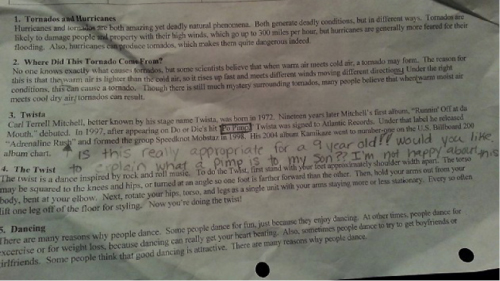 1. Tornados and Hurricanes
Hurricanes and tornados are both amazing yet deadly natural phenomena. Both generate deadly conditions, but in different ways. Tornados are
likely to damage people and property with their high winds, which go up to 300 miles per hour, but hurricanes are generally more feared for their
flooding. Also, hurricanes can produce tornados, which makes them quite dangerous indeed.
2. Where Did This Tornado Come From?
No one knows exactly what causes tornados, but some scientists believe that when warm airs meets cold air, a tornado may form. The reason for
this is that the warm air is lighter than the cold air, so it rises up fast and meets different winds moving different directions. Under the right
conditions, this can cause a tornado. Though there is still much mystery surrounding tornados, many people believe that when warm moist air
meets cool dry air, tornados can result.
3. Twista
Carl Terrell Mitchell, better known by his stage name Twista, was born in 1972. Nineteen years later Mitchell's first album, "Runnin' Off at da
Mouth," debuted. In 1997, after appearing on Do or Die's hit Po Pimp, Twista was signed to Atlantic Records. Under that label he released
"Adrenaline Rush" and formed the group Speedknot Mobstaz in 1998. His 2004 album Kamikaze went to number one on the U.S. Billboard 200
album chart.
Is this really appropriate for a 9 year old?? Would you like
to explain what a Pimp is to my son?? I'm not happy about this
4. The Twist
The twist is a dance inspired by rock and roll music. To do the Twist, first stand with your feet approximately shoulder width apart. The torso
may be squared to the knees and hips, or turned at an angle so one foot is farther forward than the other. Then, hold your arms out from your
body, bent at your elbow. Next, rotate your hips, torso, and legs as a single unit with your arms staying more or less stationary. Every so often,
lift one leg off of the floor for styling. Now you're doing the twist!
5. Dancing
There are many reasons why people dance. Some people dance for fun, just because they enjoy dancing. At other times, people dance for
excercise or for weight loss, because dancing can really get your heart beating. Also, sometimes people dance to try to get boyfriends or
girlfriends. Some people think that good dancing is attractive. There are many reasons why people dance.